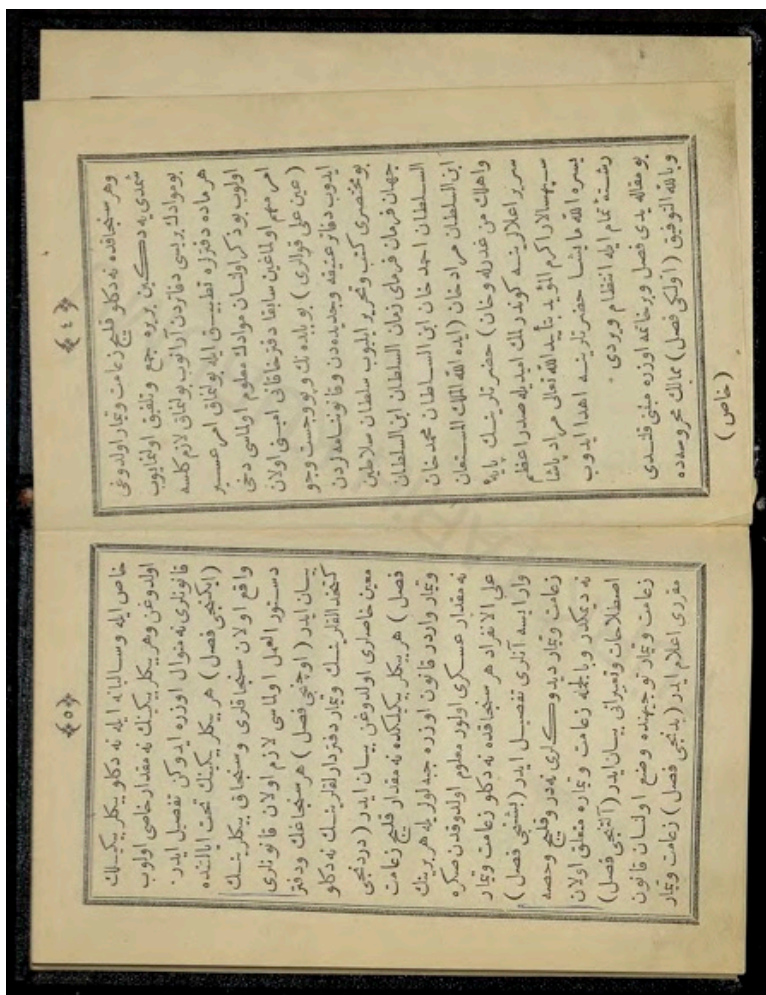 ﴿٤﴾
وهر سنجاقده نه دكلو قليج زعامت وتيمار اولدوغى
شمدى يه دكين بريره جمع وتلفيق اولنمايوب
بوموادك بريسى دفاتردن آرانوب بولنماق لازم كلسه
هر ماده دفترلره تطبيق ايله بولنماق امر عسير
اولوب بو ذكر اولنان موادك معلوم اولماسى دخى
امر مهم اولماغين سابقا دفتر خاقانى امينى اولان
(عين على قوللرى) بو بابده تك وپو وجست وجو
ايدوب دفاتر عتيقه وجديده دن وقانوننامه لردن
بو مختصرى كتب وتحرير ايليوب سلطان سلاطين
جهان فرمان فرماى زمان السلطان ابن السلطان
السلطان احمد خان ابن السلطان محمد خان
ابن السلطان مراد خان (ايده الله الملك المستعان
واهلك من غدره وخان) حضرتلرينك پايه
سرير اعلالرينه كوندرلمك اميديله صدر اعظم
سپهسالار اكرم المؤيد بتأييد الله تعالى مراد پاشا
يسره الله ما يشا حضرتلرينه اهدا ايدوب
رشته تمام ايله انتظام ويردى .
بو مقاله يدى فصل وبر خاتمه اوزره مبنى قلندى
وبالله التوفيق (اولكى فصل) ممالك محروسه ده
(خاص)
﴿٥﴾
خاص ايله وساليانه ايله نه دكلو بكلربكيلك
اولدوغن وهر بكلربكينك نه مقدار خاصى اولوب
قانونلرى نه منوال اوزره ايدوكن تفصيل ايدر.
(ايكنجى فصل) هر بكلربكينك تحت ايالتنده
واقع اولان سنجاقلرى وسنجاق بكلرينك
دستور العمل اولماسى لازم اولان قانونلرى
بيان ايدر (اوچنجى فصل) هر سنجاغك ودفتر
كتخدالقلرينك وتيمار دفتردارلقلرينك نه دكلو
معين خاصلرى اولدوغن بيان ايدر (دردنجى
فصل) هر بكلربكيلكده نه مقدار قليج زعامت
وتيمار واردر قانون اوزره جبه لولريله هر برينك
نه مقدار عسكرى اولور معلوم اولدوقدن صكره
على الانفراد هر سنجاقده نه دكلو زعامت وتيمار
وار ايسه آنلرى تفصيل ايدر (بشنجى فصل)
زعامت وتيمار ديدوكلرى نه در وقليج وحصه
نه ديمكدر وبالجمله زعامت وتيماره متعلق اولان
اصطلاحات وتعبيراتى بيان ايدر (آلتنجى فصل)
زعامت وتيمار توجيهنده وضع اولنان قانون
مقررى اعلام ايدر (يدنجى فصل) زعامت وتيمار